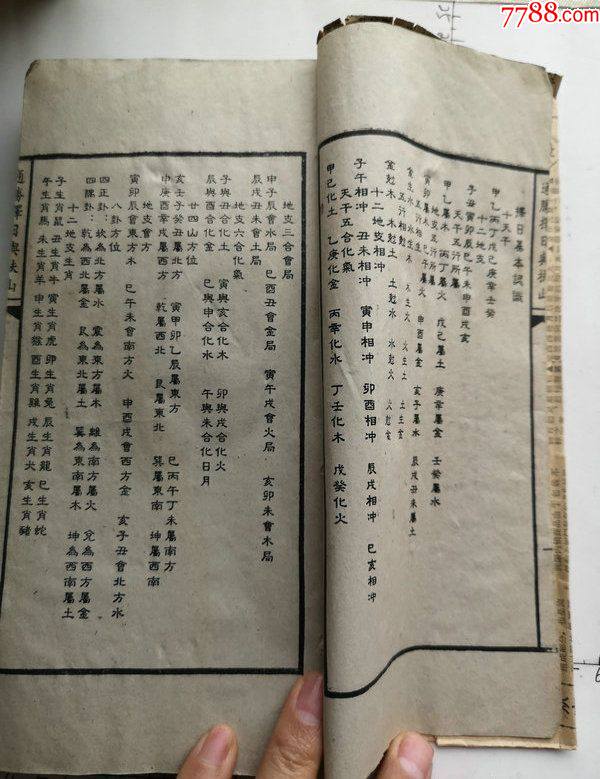 7788.com
擇日基本認識
十天干
甲乙丙丁戊己庚辛壬癸
十二地支
子丑寅卯辰巳午未申酉戌亥
天干五行所屬
甲乙屬木 丙丁屬火 戊己屬土 庚辛屬金 壬癸屬水
地支五行所屬
寅卯屬木 巳午屬火 申酉屬金 亥子屬水 辰戌丑未屬土
五行相生
金生水 水生木 木生火 火生土 土生金
五行相尅
金尅木 木尅土 土尅水 水尅火 火尅金
十二地支相冲
子午相冲 丑未相冲 寅申相冲 卯酉相冲 辰戌相冲 巳亥相冲
天干五合化氣
甲己化土 乙庚化金 丙辛化水 丁壬化木 戊癸化火
地支三合會局
申子辰會水局 巳酉丑會金局 寅午戌會火局 亥卯未會木局
辰戌丑未會土局
地支六合化氣
子與丑合化土 寅與亥合化木 卯與戌合化火
辰與酉合化金 巳與申合化水 午與未合化日月
廿四山方位
亥壬子癸丑屬北方 寅甲卯乙辰屬東方 巳丙午丁未屬南方
申庚酉辛戌屬西方 乾屬西北 艮屬東北 巽屬東南 坤屬西南
地支會方
寅卯辰會東方木 巳午未會南方火 申酉戌會西方金 亥子丑會北方水
八卦方位
四正卦：坎為北方屬水 震為東方屬木 離為南方屬火 兌為西方屬金
四隅卦：乾為西北屬金 艮為東北屬土 巽為東南屬木 坤為西南屬土
十二地支生肖
子生肖鼠 丑生肖牛 寅生肖虎 卯生肖兔 辰生肖龍 巳生肖蛇
午生肖馬 未生肖羊 申生肖猴 酉生肖雞 戌生肖犬 亥生肖豬
通勝擇日與扶山